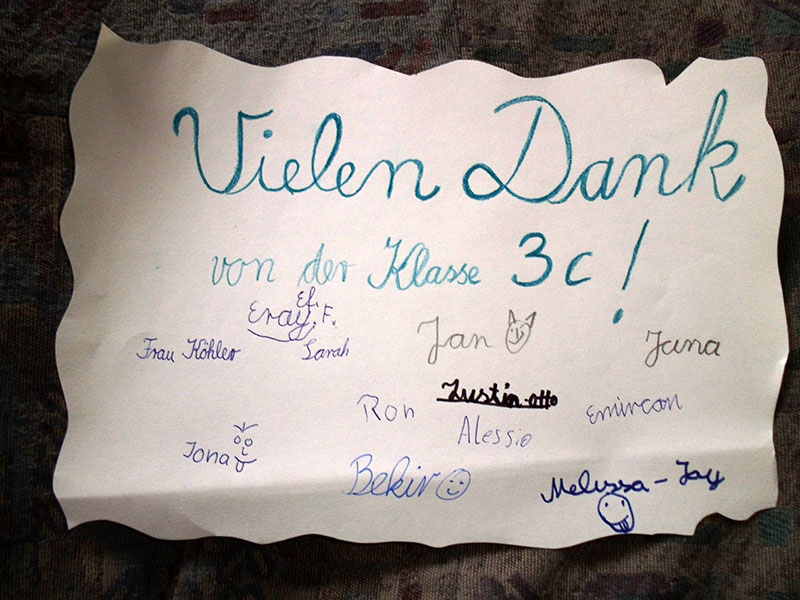 Vielen Dank
von der Klasse 3c!
Ef.
Eray. F.
Frau Köhler
Sarah
Jan
Jana
Justin-otto
Ron
Alessio
Emircan
Jona
Bekir
Melissa-Jay